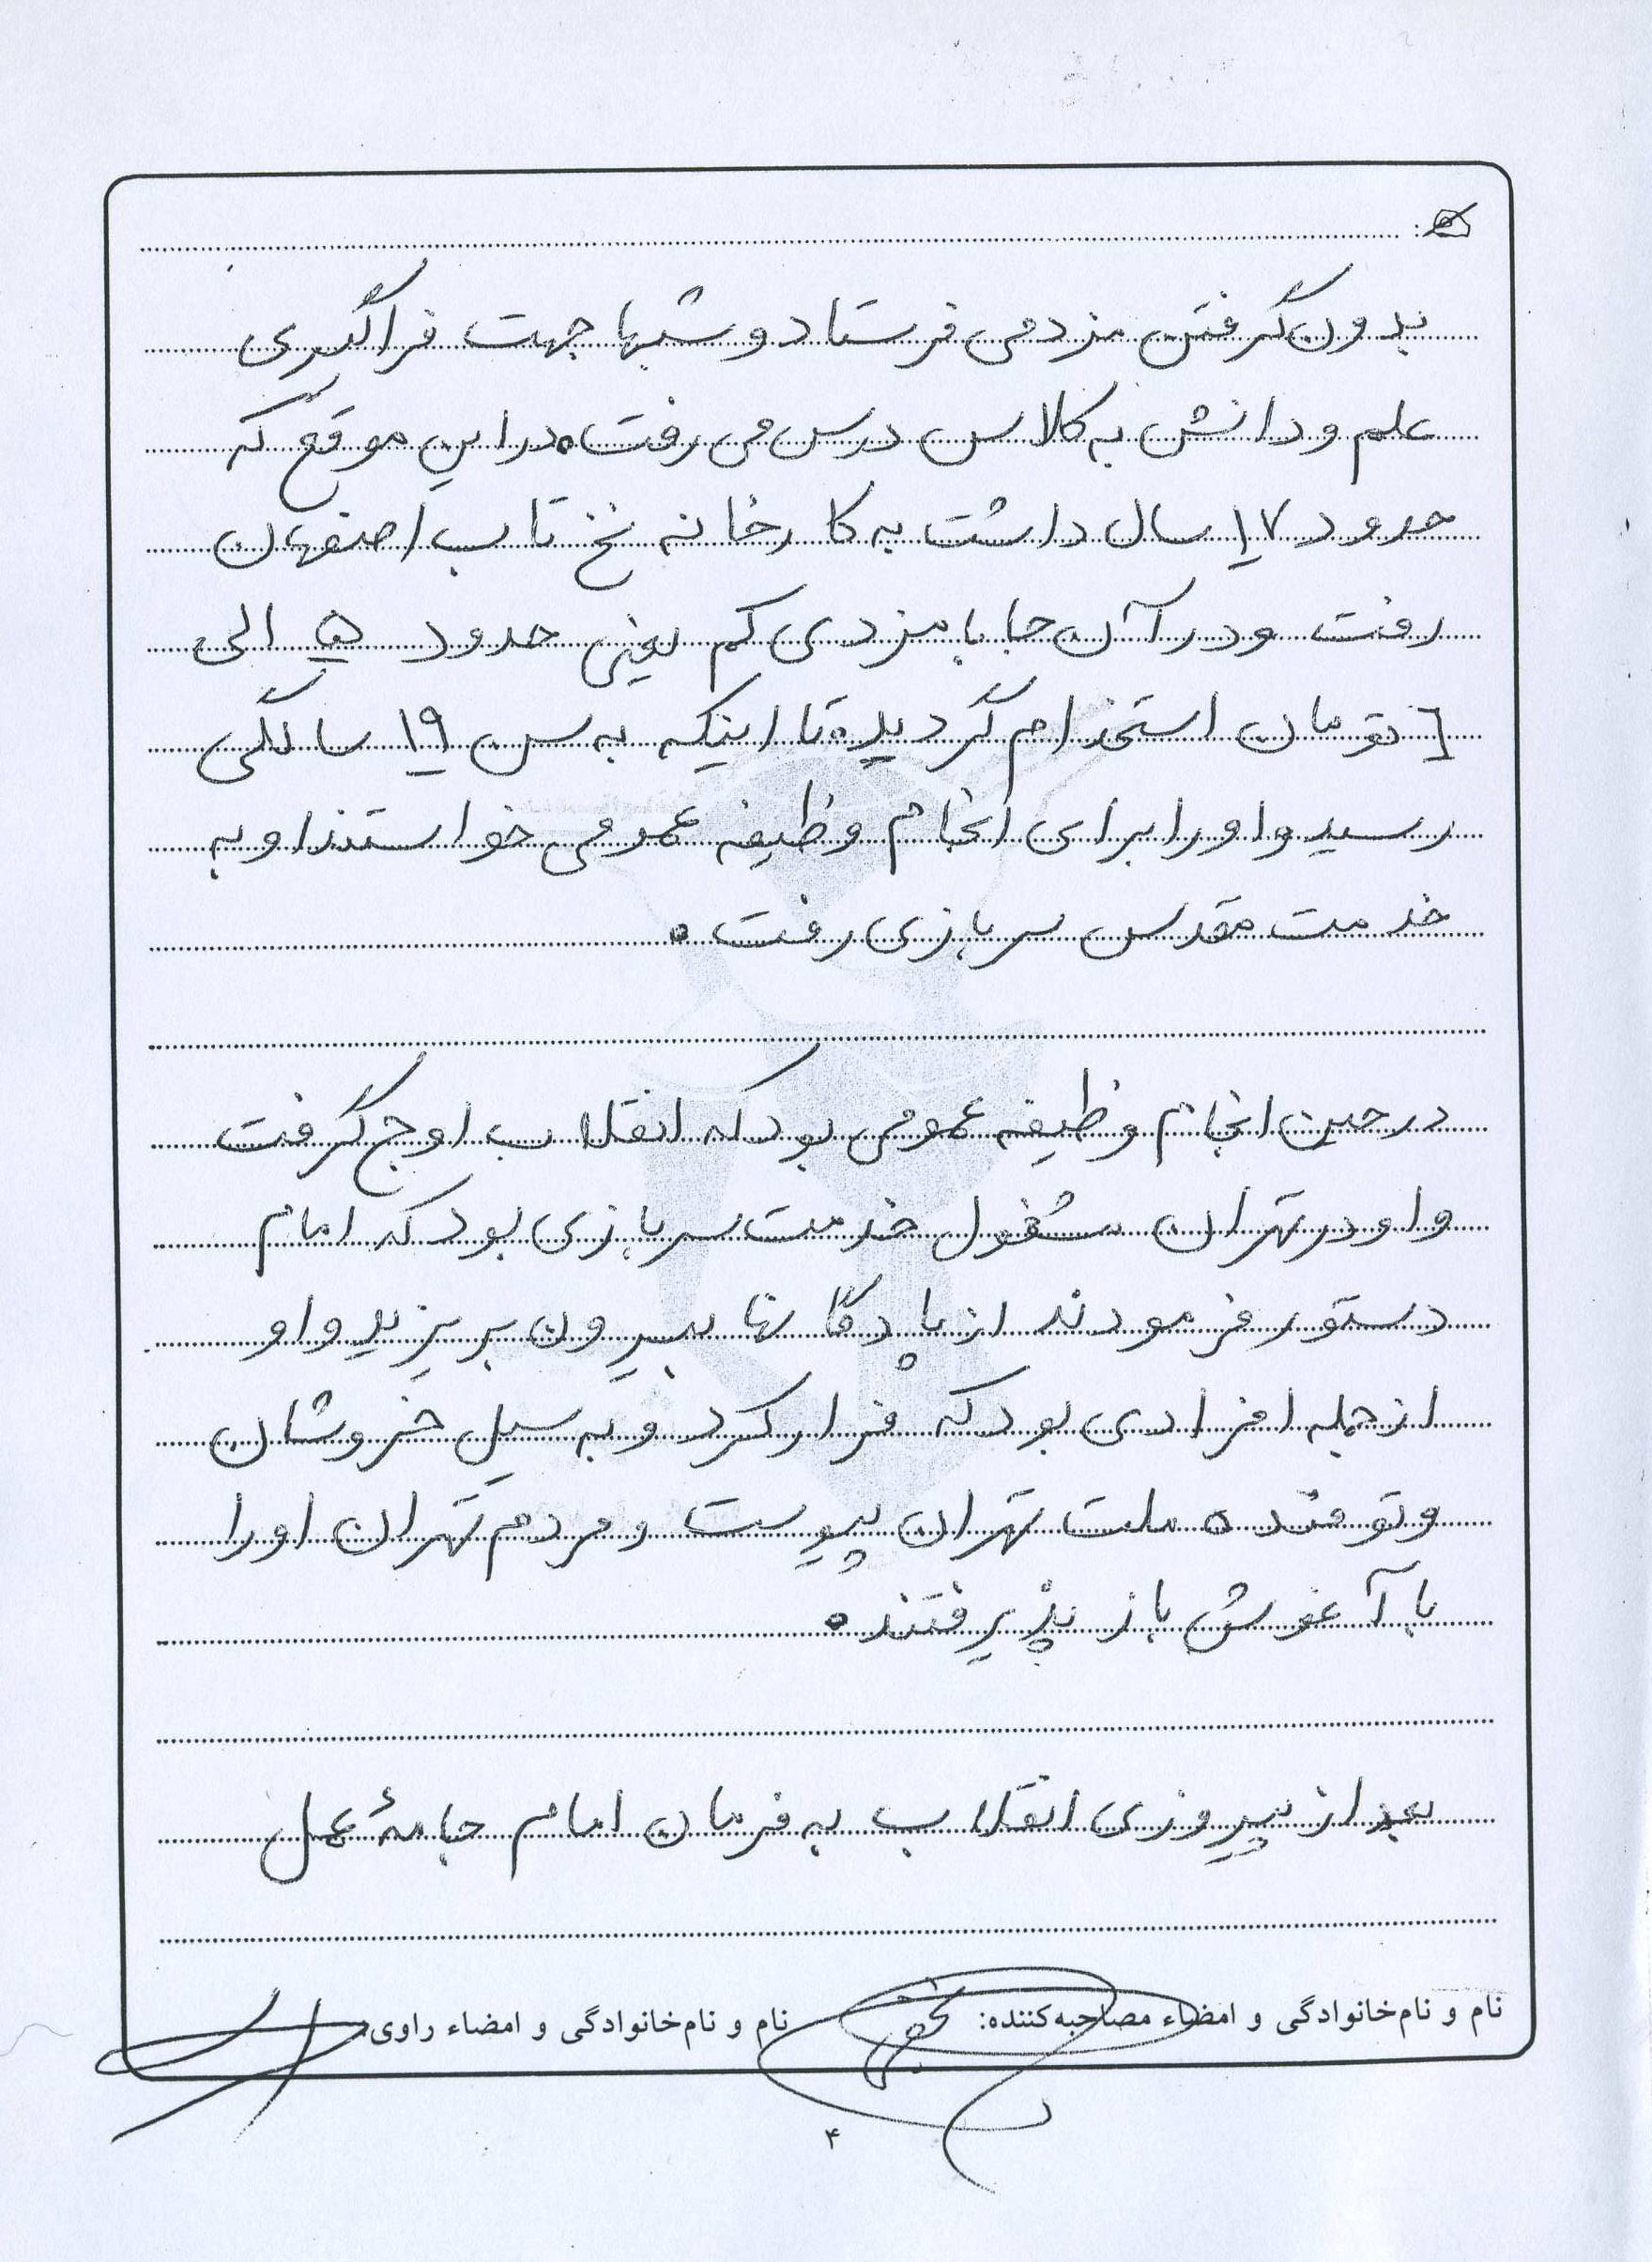 بدون گرفتن مزد می فرستاد و شبها جهت فراگیری
علم و دانش به کلاس درس می رفت. در این موقع که
حدود ۱۷ سال داشت به کارخانه نخ تاب اصفهان
رفت و در آن جا با مزدی کم یعنی حدود ۵ الی
۶ تومان استخدام گردید. تا اینکه به سن ۱۹ سالگی
رسید و او را برای انجام وظیفه عمومی خواستند او به
خدمت مقدس سربازی رفت.
در حین انجام وظیفه عمومی بود که انقلاب اوج گرفت
و او در تهران مشغول خدمت سربازی بود که امام
دستور فرمودند از پادگانها بیرون بریزید و او
از جمله افرادی بود که فرار کرد و به سیل خروشان
و توفنده ملت تهران پیوست و مردم تهران او را
با آغوش باز پذیرفتند.
بعد از پیروزی انقلاب به فرمان امام جامهٔ عمل
نام و نام‌خانوادگی و امضاء مصاحبه‌کننده: نام و نام‌خانوادگی و امضاء راوی:
۴